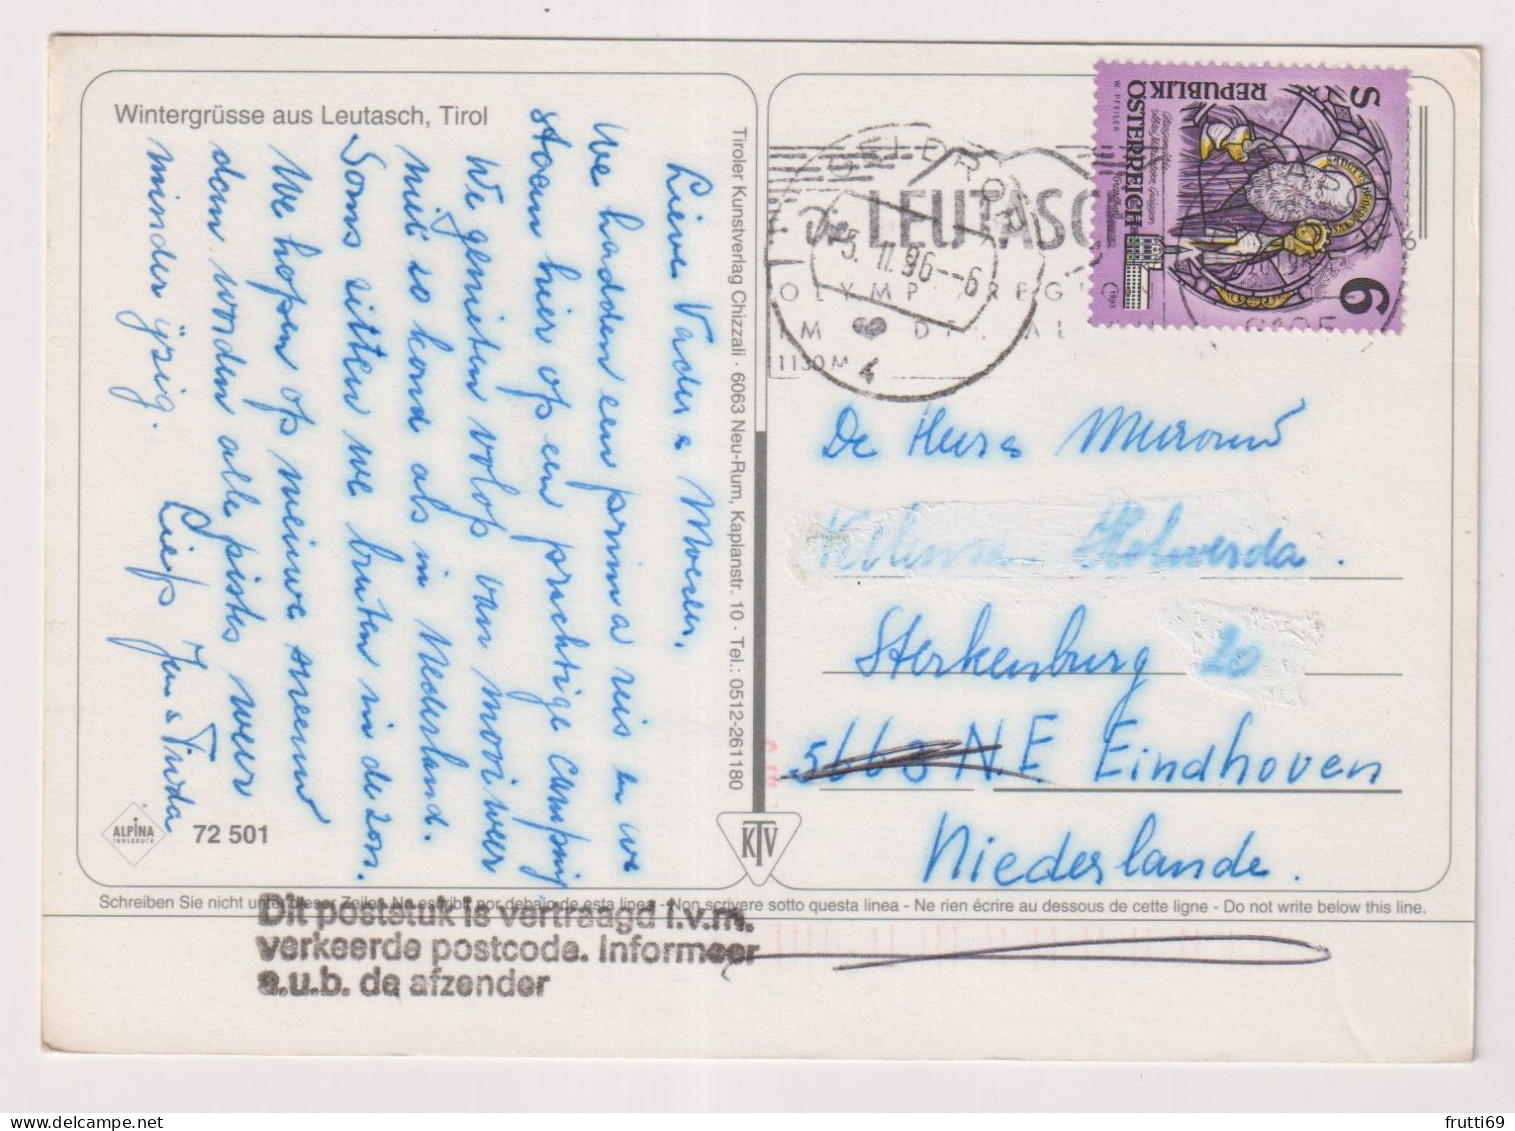 Wintergrüsse aus Leutasch, Tirol
Lieve Vader & Moeder.
We hadden een prima reis en we
staan hier op een prachtige camping
We genieten volop van mooi weer
niet so koud als in Nederland.
Soms zitten we buiten in de zon.
We hopen op nieuwe sneeuw
dan worden alle pistes weer
minder ijzig.
Liefs Jan & Tinda
ALPINA
INNSBRUCK
72 501
Tiroler Kunstverlag Chizzali · 6063 Neu-Rum, Kaplanstr. 10 · Tel.: 0512-261180
KTV
REPUBLIK
ÖSTERREICH
W. PFEILER
S
6
1993
LEUTASC
5. 11. 96 - - 6
OLYMP REGI
IM DE AL
1130 M
4
De Heer &
Holwerda.
Sterkenburg 20
5663 N.E. Eindhoven
Niederlande.
Schreiben Sie nicht unter dieser Zeile - No escribir por debajo de esta linea - Non scrivere sotto questa linea - Ne rien écrire au dessous de cette ligne - Do not write below this line.
Dit poststuk is vertraagd i.v.m.
verkeerde postcode. Informeer
a.u.b. de afzender
frutti69